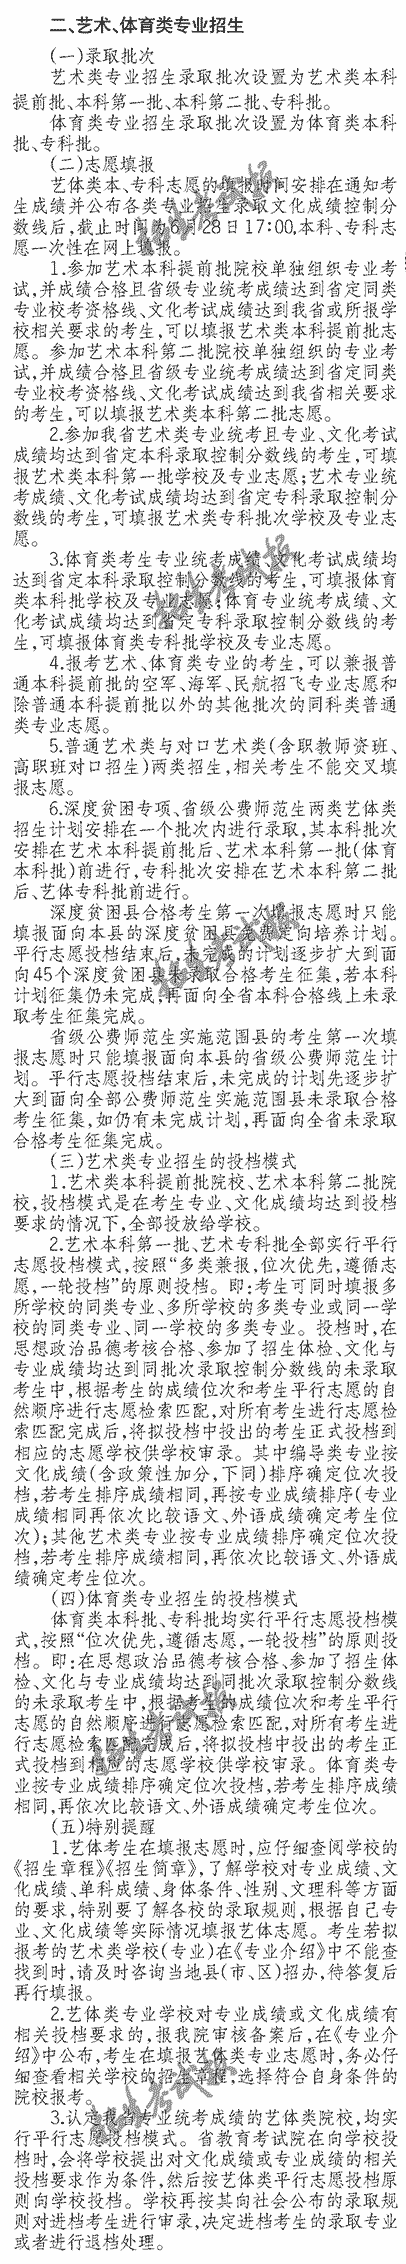 二、艺术、体育类专业招生
(一)录取批次
艺术类专业招生录取批次设置为艺术类本科
提前批、本科第一批、本科第二批、专科批。
体育类专业招生录取批次设置为体育类本科
批、专科批。
(二)志愿填报
艺体类本、专科志愿的填报时间安排在通知考
生成绩并公布各类专业招生录取文化成绩控制分
数线后,截止时间为6月28日17:00,本科、专科志
愿一次性在网上填报。
1.参加艺术本科提前批院校单独组织专业考
试,并成绩合格且省级专业统考成绩达到省定同类
专业校考资格线、文化考试成绩达到我省或所报学
校相关要求的考生,可以填报艺术类本科提前批志
愿。参加艺术本科第二批院校单独组织的专业考
试,并成绩合格且省级专业统考成绩达到省定同类
专业校考资格线、文化考试成绩达到我省相关要求
的考生,可以填报艺术类本科第二批志愿。
2.参加我省艺术类专业统考且专业、文化考试
成绩均达到省定本科录取控制分数线的考生,可填
报艺术类本科第一批学校及专业志愿;艺术专业统
考成绩、文化考试成绩均达到省定专科录取控制分
数线的考生,可填报艺术类专科批次学校及专业志
愿。
3.体育类考生专业统考成绩、文化考试成绩均
达到省定本科录取控制分数线的考生,可填报体育
类本科批学校及专业志愿;体育专业统考成绩、文
化考试成绩均达到省定专科录取控制分数线的考
生,可填报体育类专科批学校及专业志愿。
4.报考艺术、体育类专业的考生,可以兼报普
通本科提前批的空军、海军、民航招飞专业志愿和
除普通本科提前批以外的其他批次的同科类普通
类专业志愿。
5.普通艺术类与对口艺术类(含职教师资班、
高职班对口招生)两类招生,相关考生不能交叉填
报志愿。
6.深度贫困专项、省级公费师范生两类艺体类
招生计划安排在一个批次内进行录取,其本科批次
安排在艺术本科提前批后、艺术本科第一批(体育
本科批)前进行,专科批次安排在艺术本科第二批
后、艺体专科批前进行。
深度贫困县合格考生第一次填报志愿时只能
填报面向本县的深度贫困县免费定向培养计划。
平行志愿投档结束后,未完成的计划逐步扩大到面
向45个深度贫困县未录取合格考生征集,若本科
计划征集仍未完成,再面向全省本科合格线上未录
取考生征集完成。
省级公费师范生实施范围县的考生第一次填
报志愿时只能填报面向本县的省级公费师范生计
划。平行志愿投档结束后,未完成的计划先逐步扩
大到面向全部公费师范生实施范围县未录取合格
考生征集,如仍有未完成计划,再面向全省未录取
合格考生征集完成。
(三)艺术类专业招生的投档模式
1.艺术类本科提前批院校、艺术本科第二批院
校,投档模式是在考生专业、文化成绩均达到投档
要求的情况下,全部投放给学校。
2.艺术本科第一批、艺术专科批全部实行平行
志愿投档模式,按照“多类兼报,位次优先,遵循志
愿,一轮投档”的原则投档。即:考生可同时填报多
所学校的同类专业、多所学校的多类专业或同一学
校的同类专业、同一学校的多类专业。投档时,在
思想政治品德考核合格、参加了招生体检、文化与
专业成绩均达到同批次录取控制分数线的未录取
考生中,根据考生的成绩位次和考生平行志愿的自
然顺序进行志愿检索匹配,对所有考生进行志愿检
索匹配完成后,将拟投档中投出的考生正式投档到
相应的志愿学校供学校审录。其中编导类专业按
文化成绩(含政策性加分,下同)排序确定位次投
档,若考生排序成绩相同,再按专业成绩排序(专业
成绩相同再依次比较语文、外语成绩确定考生位
次);其他艺术类专业按专业成绩排序确定位次投
档,若考生排序成绩相同,再依次比较语文、外语成
绩确定考生位次。
(四)体育类专业招生的投档模式
体育类本科批、专科批均实行平行志愿投档模
式,按照“位次优先,遵循志愿,一轮投档”的原则投
档。即:在思想政治品德考核合格、参加了招生体
检、文化与专业成绩均达到同批次录取控制分数线
的未录取考生中,根据考生的成绩位次和考生平行
志愿的自然顺序进行志愿检索匹配,对所有考生进
行志愿检索匹配完成后,将拟投档中投出的考生正
式投档到相应的志愿学校供学校审录。体育类专
业按专业成绩排序确定位次投档,若考生排序成绩
相同,再依次比较语文、外语成绩确定考生位次。
(五)特别提醒
1.艺体考生在填报志愿时,应仔细查阅学校的
《招生章程》《招生简章》,了解学校对专业成绩、文
化成绩、单科成绩、身体条件、性别、文理科等方面
的要求,特别要了解各校的录取规则,根据自己专
业、文化成绩等实际情况填报艺体志愿。考生若拟
报考的艺术类学校(专业)在《专业介绍》中不能查
找到时,请及时咨询当地县(市、区)招办,待答复后
再行填报。
2.艺体类专业学校对专业成绩或文化成绩有
相关投档要求的,报我院审核备案后,在《专业介
绍》中公布,考生在填报艺体类专业志愿时,务必仔
细查看相关学校的招生章程,选择符合自身条件的
院校报考。
3.认定我省专业统考成绩的艺体类院校,均实
行平行志愿投档模式。省教育考试院在向学校投
档时,会将学校提出对文化成绩或专业成绩的相关
投档要求作为条件,然后按艺体类平行志愿投档原
则向学校投档。学校再按其向社会公布的录取规
则对进档考生进行审录,决定进档考生的录取专业
或者进行退档处理。